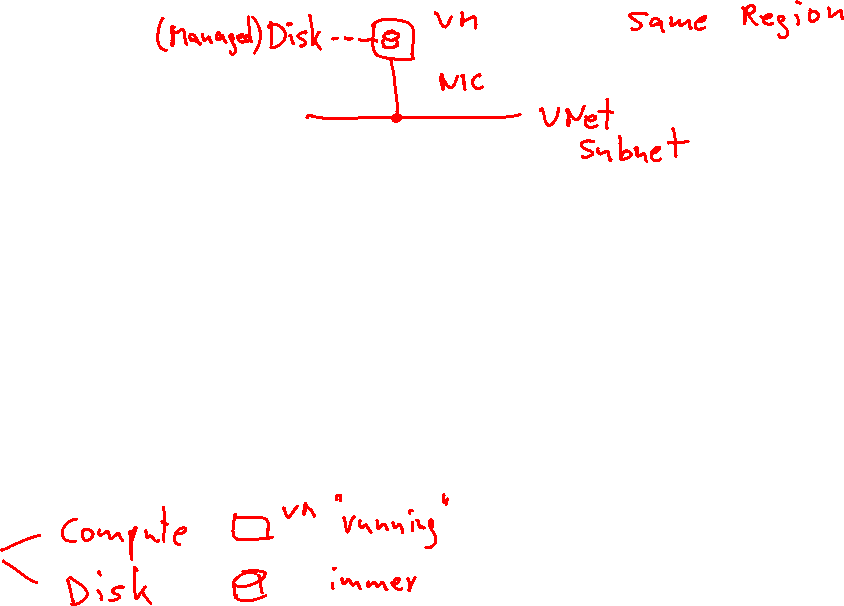 (Managed) Disk VM Same Region
NIC
VNet
Subnet
Compute VM "running"
Disk immer